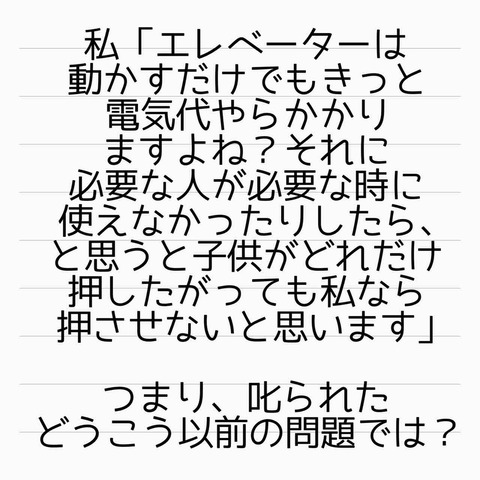 私「エレベーターは
動かすだけでもきっと
電気代やらかかり
ますよね？それに
必要な人が必要な時に
使えなかったりしたら、
と思うと子供がどれだけ
押したがっても私なら
押させないと思います」
つまり、叱られた
どうこう以前の問題では？